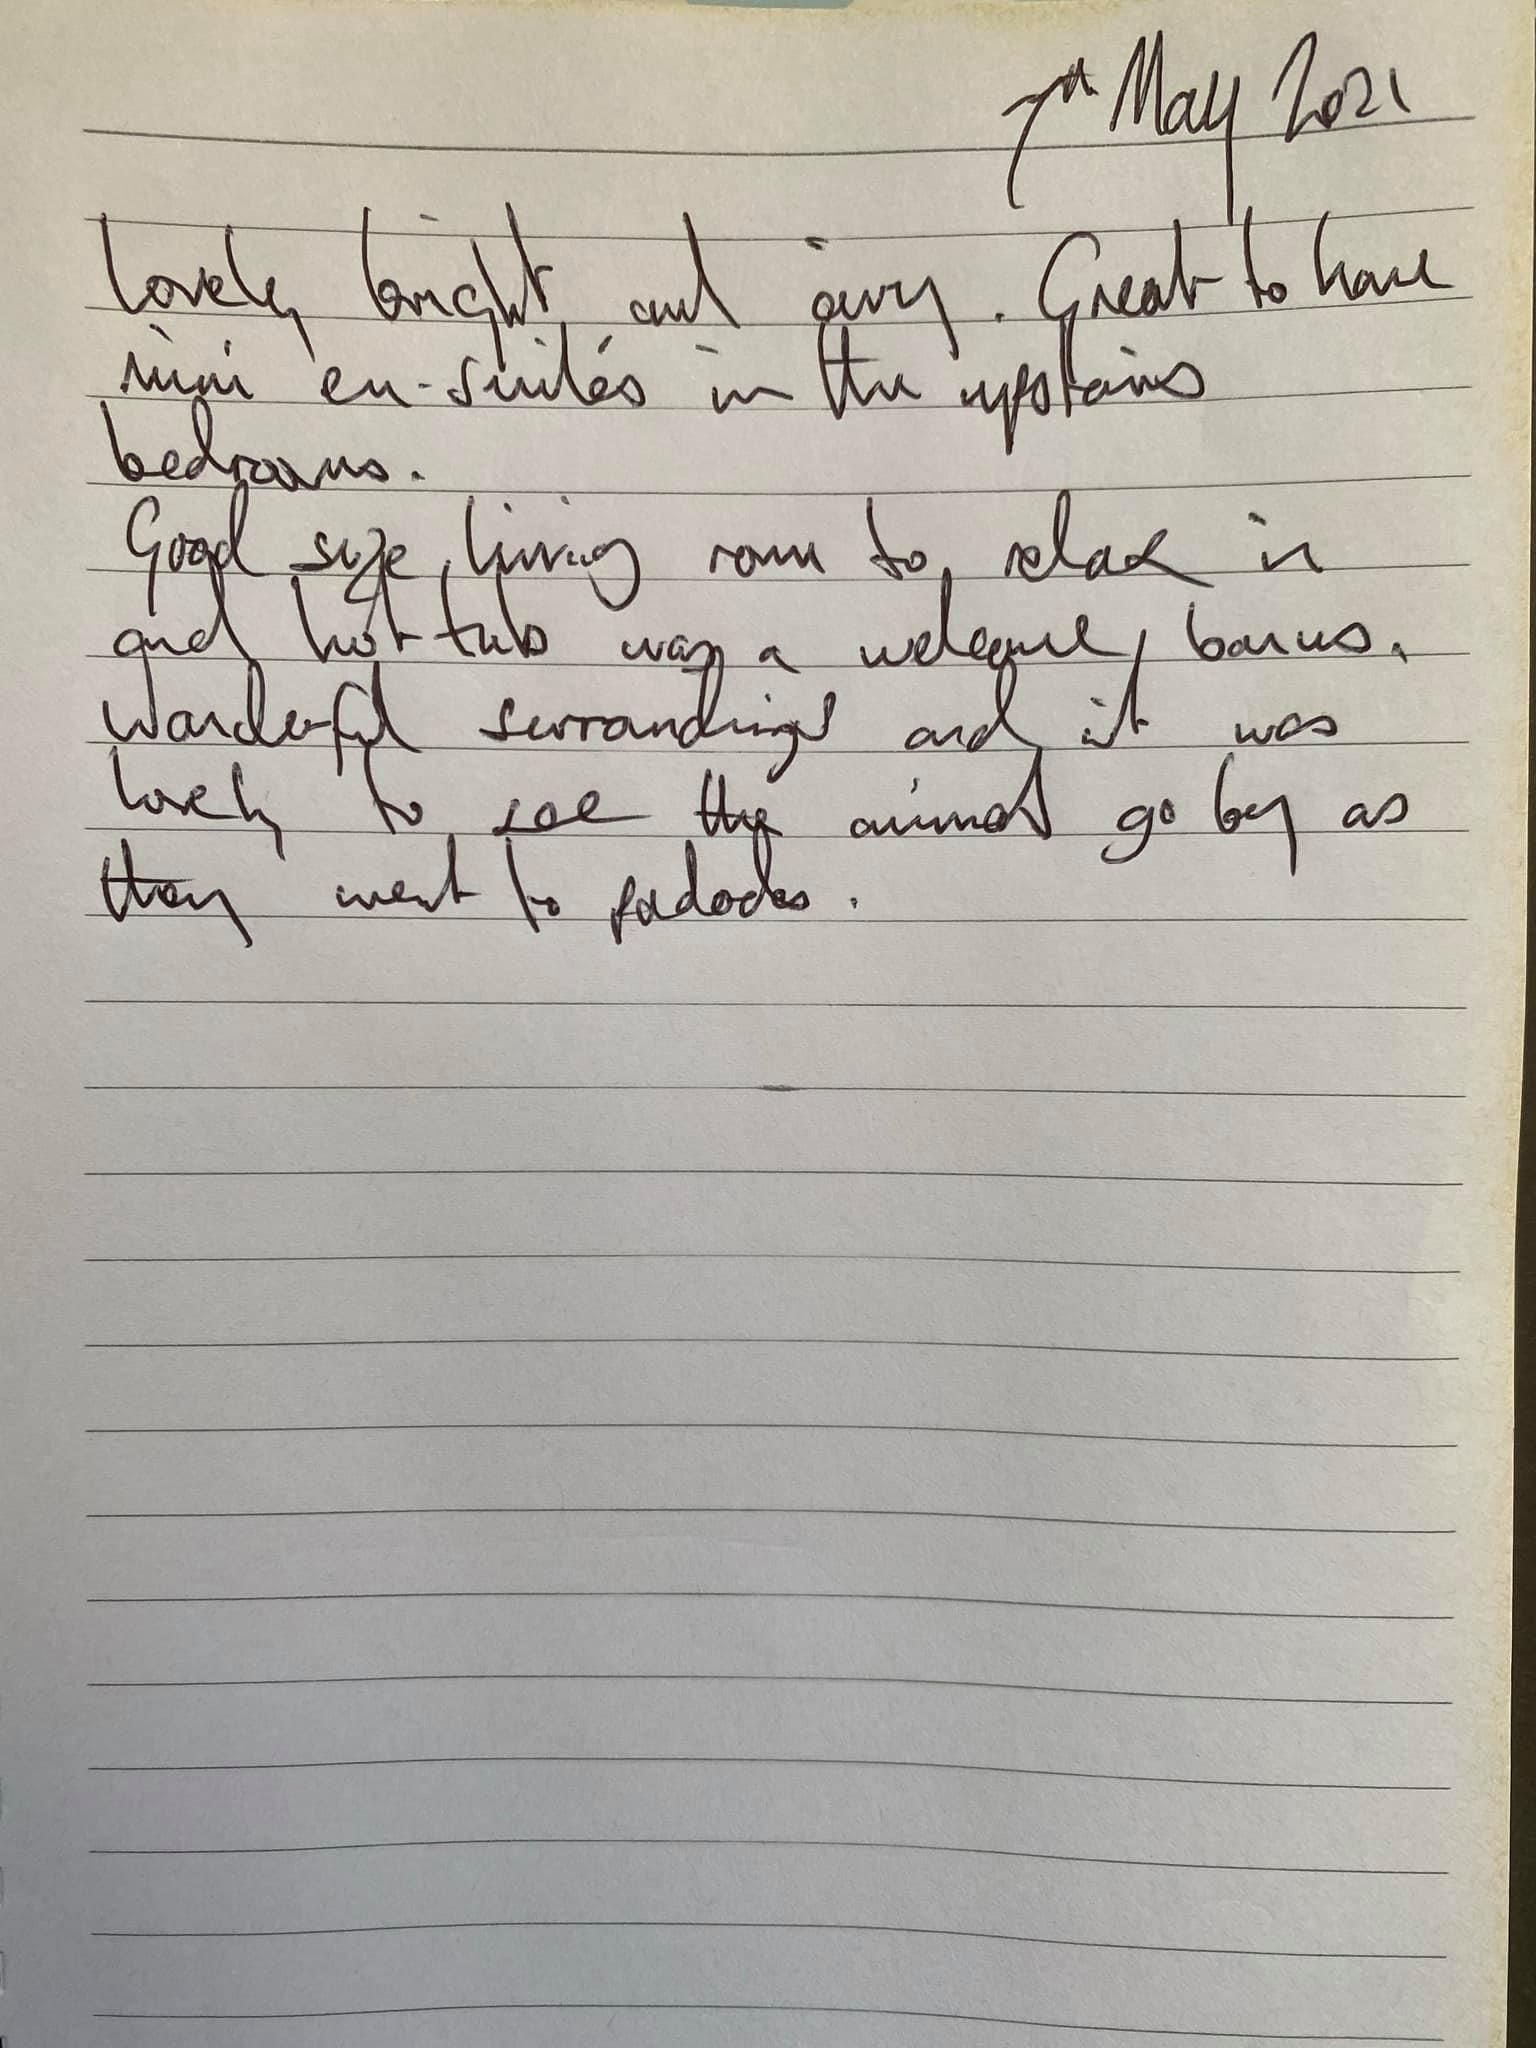 7th May 2021
Lovely bright and airy. Great to have
mini en-suites in the upstairs
bedrooms.
Good size living room to relax in
and hot tub was a welcome bonus.
Wonderful surroundings and it was
lovely to see the animals go by as
they went to padocks.